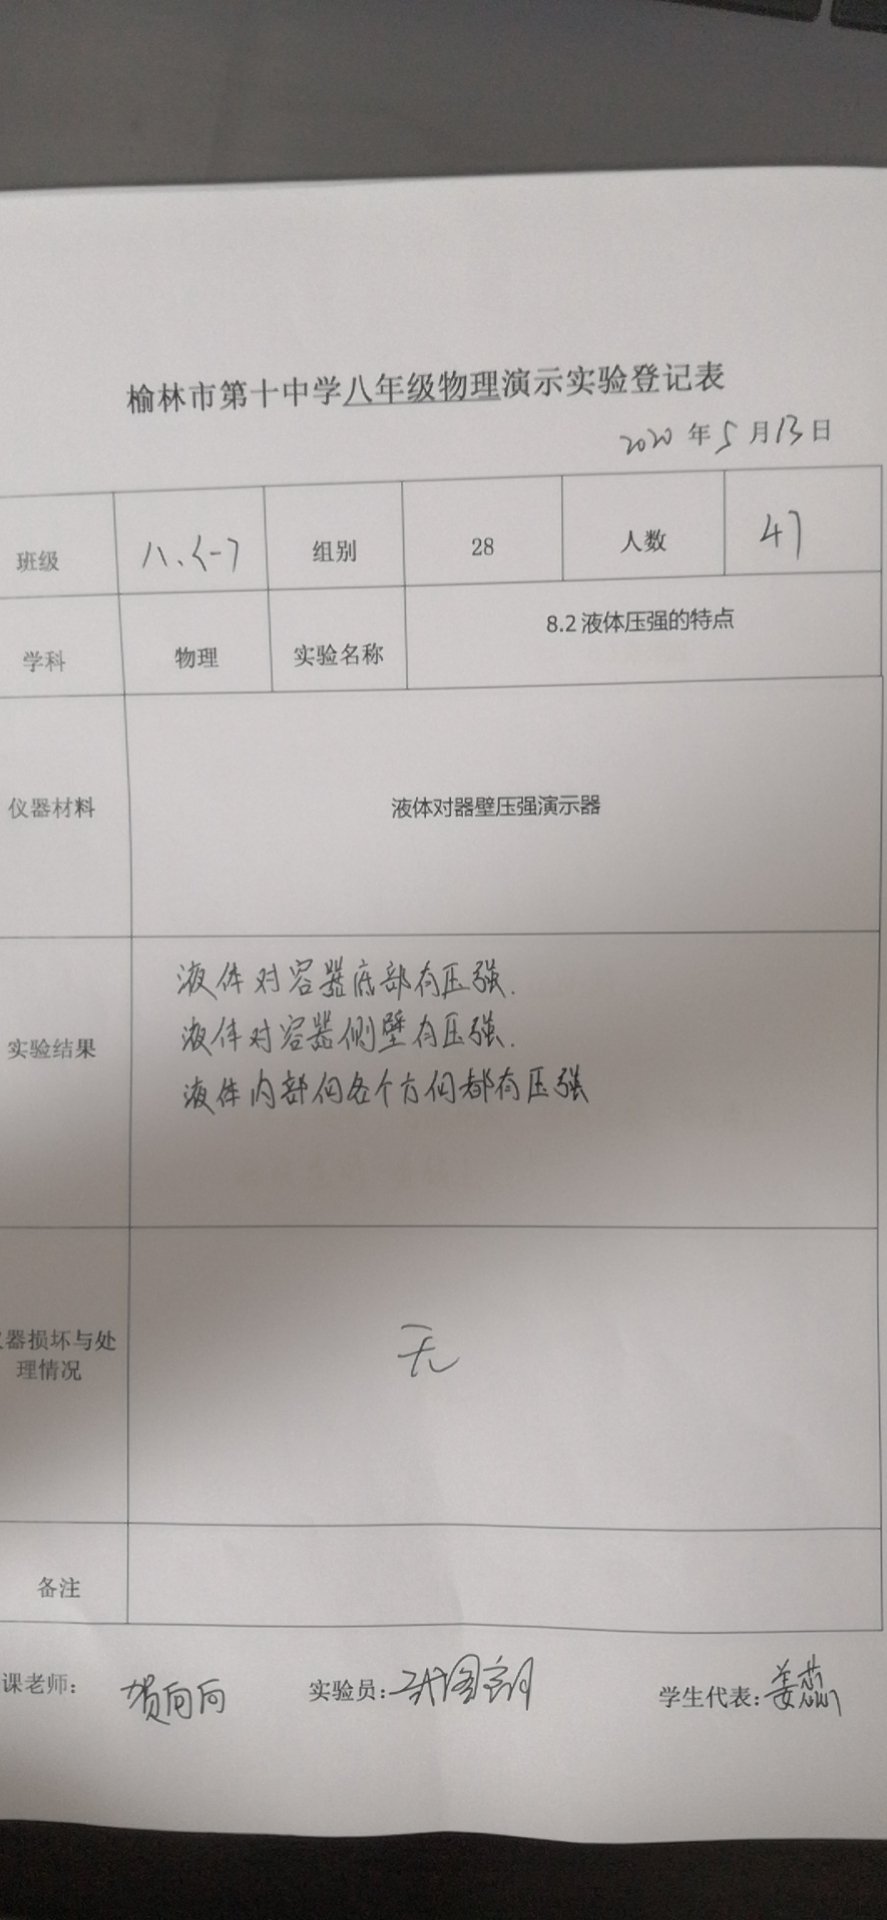 榆林市第十中学八年级物理演示实验登记表
2020 年 5 月 13 日
班级 八.<一> 组别 28 人数 47
学科 物理 实验名称 8.2 液体压强的特点
仪器材料 液体对器壁压强演示器
实验结果
液体对容器底部有压强.
液体对容器侧壁有压强.
液体内部向各个方向都有压强
器损坏与处
理情况
无
备注
课老师: 贺向向 实验员: 学生代表: 姜蕊